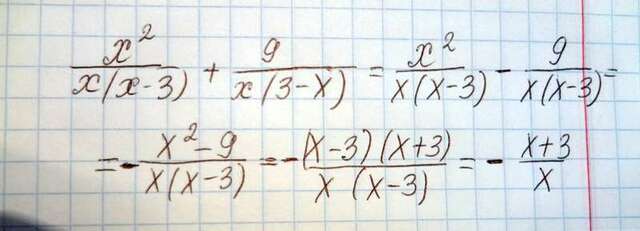 x²/x(x-3) + 9/x(3-x) = x²/x(x-3) - 9/x(x-3) =
= - x²-9/x(x-3) = - (x-3)(x+3)/x(x-3) = - x+3/x